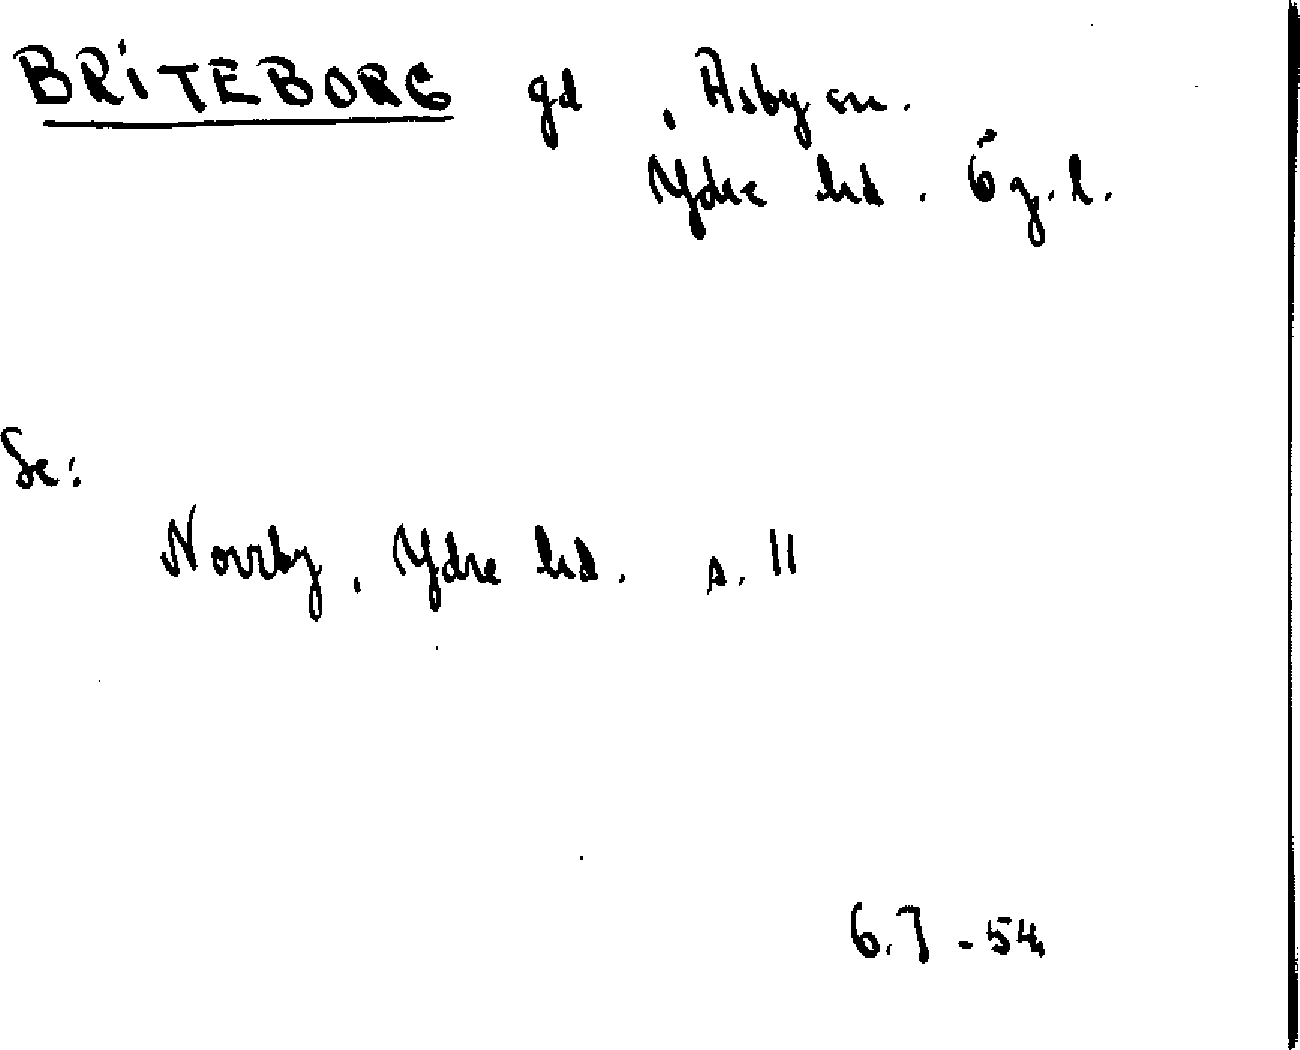 BRITEBORG gd , Asby sn.
Ydre hd. Ög. l.
Se:
Norrby, Ydre hd. s. 11
6.7 - 54